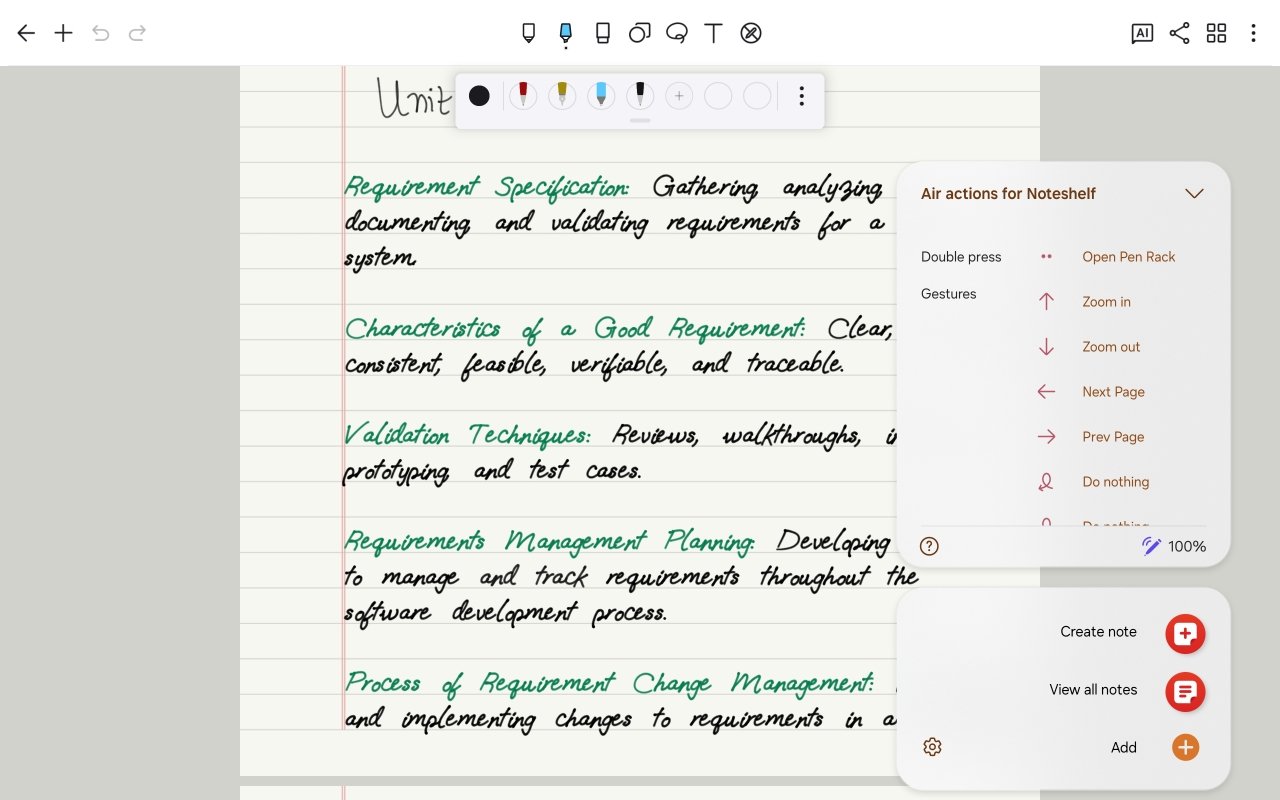 AI
Unit
Requirement Specification: Gathering, analyzing
documenting, and validating requirements for a
system.
Characteristics of a Good Requirement: Clear,
consistent, feasible, verifiable, and traceable.
Validation Techniques: Reviews, walkthroughs,
prototyping, and test cases.
Requirements Management Planning: Developing
to manage and track requirements throughout the
software development process.
Process of Requirement Change Management:
and implementing changes to requirements in a
Air actions for Noteshelf
Double press
Open Pen Rack
Gestures
Zoom in
Zoom out
Next Page
Prev Page
Do nothing
Do nothing
100%
Create note
View all notes
Add